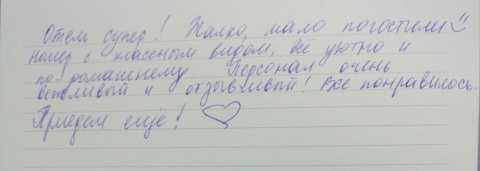 Отель супер! Жалко, мало погостили
номер с классным видом, всё уютно и
по-домашнему Персонал очень
вежливый и отзывчивый! Все понравилось.
Приедем ещё!